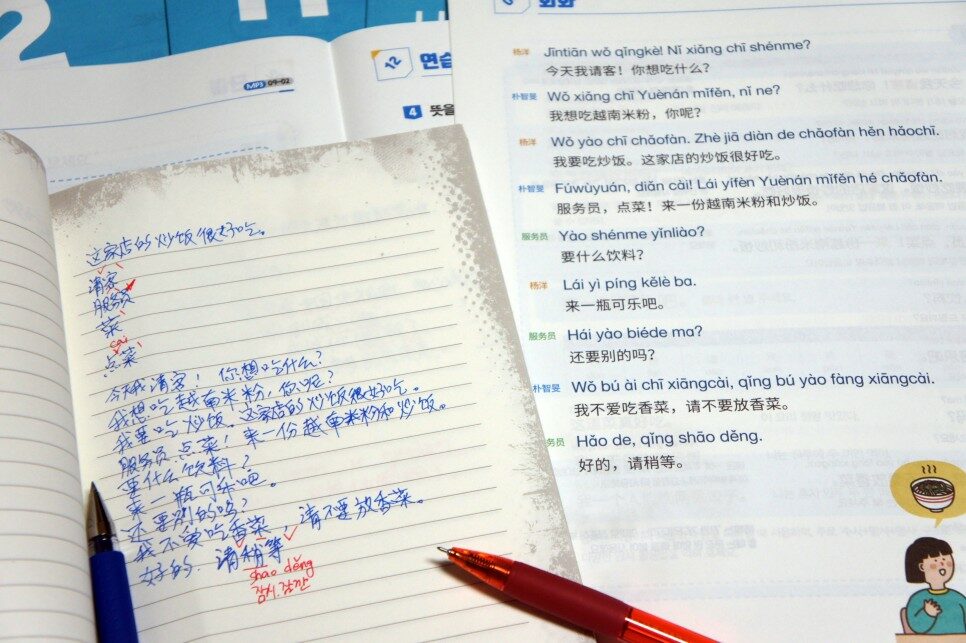 MP3 09-02
12 연습
4 뜻을
회화
杨洋 Jīntiān wǒ qǐngkè! Nǐ xiǎng chī shénme?
今天我请客！你想吃什么？
朴智旻 Wǒ xiǎng chī Yuènán mǐfěn, nǐ ne?
我想吃越南米粉，你呢？
杨洋 Wǒ yào chī chǎofàn. Zhè jiā diàn de chǎofàn hěn hǎochī.
我要吃炒饭。这家店的炒饭很好吃。
朴智旻 Fúwùyuán, diǎn cài! Lái yífèn Yuènán mǐfěn hé chǎofàn.
服务员，点菜！来一份越南米粉和炒饭。
服务员 Yào shénme yǐnliào?
要什么饮料？
杨洋 Lái yì píng kělè ba.
来一瓶可乐吧。
服务员 Hái yào biéde ma?
还要别的吗？
朴智旻 Wǒ bú ài chī xiāngcài, qǐng bú yào fàng xiāngcài.
我不爱吃香菜，请不要放香菜。
务员 Hǎo de, qǐng shāo děng.
好的，请稍等。
这家店的炒饭很好吃。
请客
服务员
菜
cai
点菜
今天我请客！你想吃什么？
我想吃越南米粉，你呢？
我要吃炒饭。这家店的炒饭很好吃。
服务员 点菜！来一份越南米粉和炒饭。
要什么饮料？
来一瓶可乐吧。
还要别的吗？
我不爱吃香菜，请不要放香菜。
好的．请稍等
shao děng
잠시. 잠깐